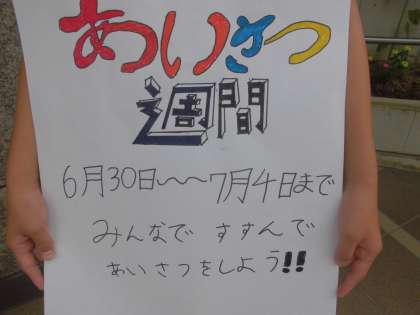 あいさつ
週間
6月30日〜〜7月4日まで
みんなで すすんで
あいさつをしよう!!